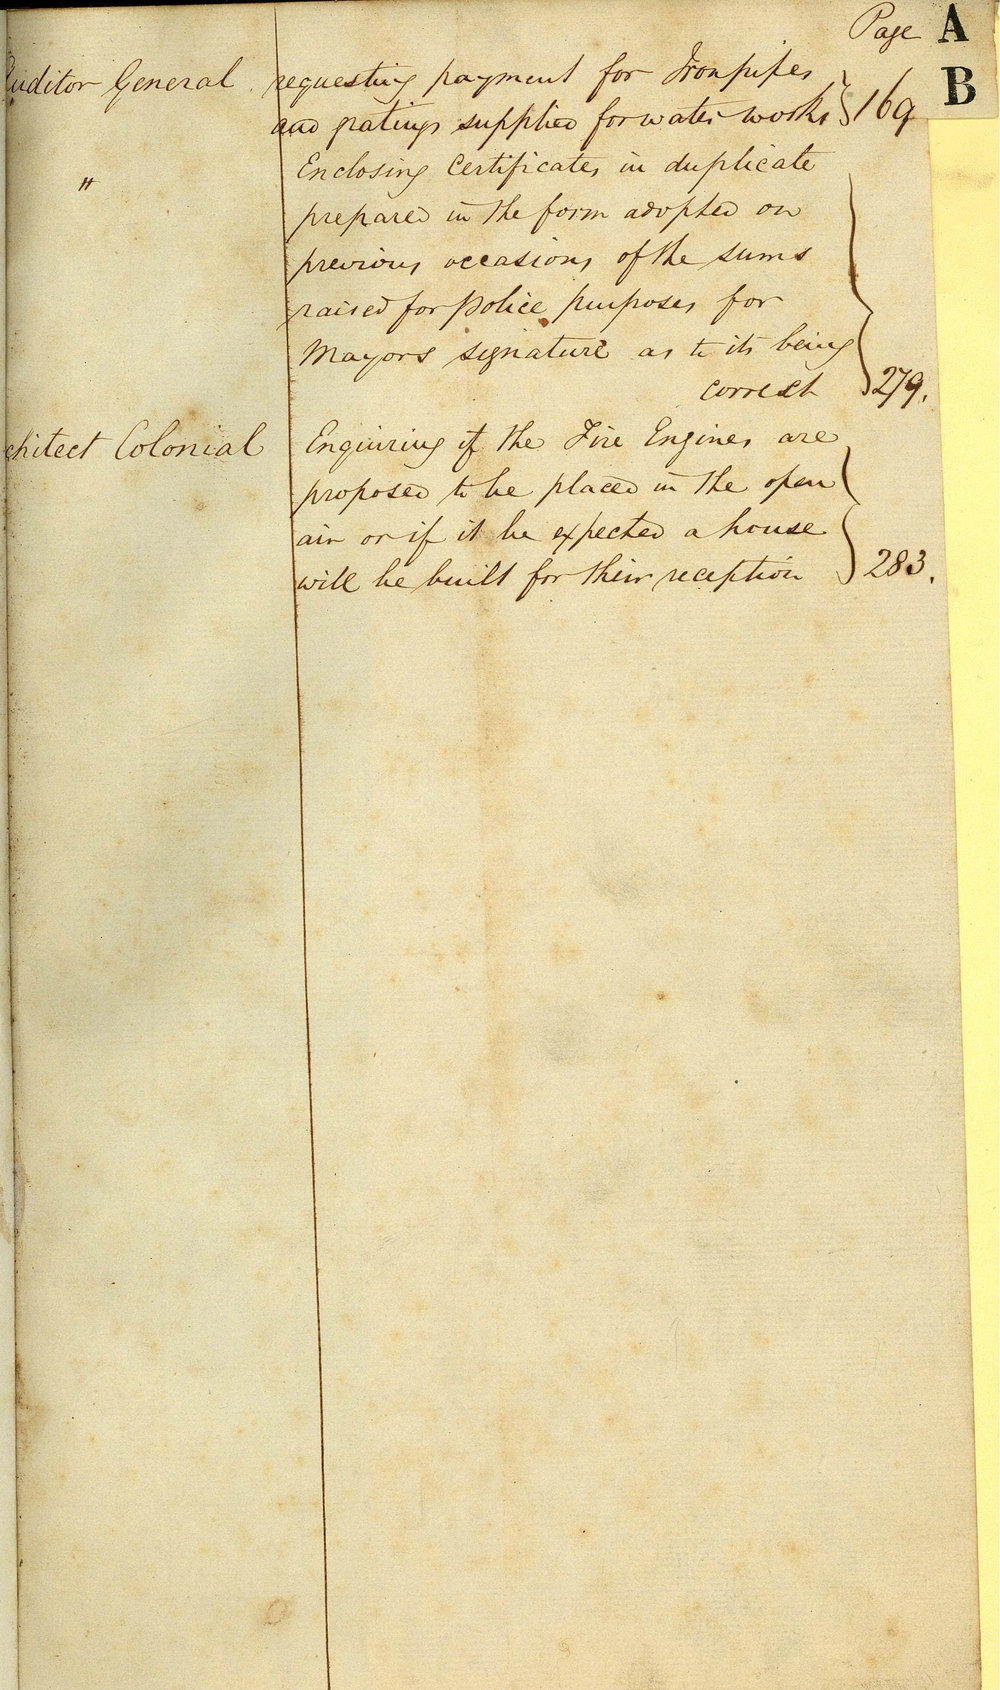 Page A
B
Auditor General requesting payment for Iron pipes
and gratings supplied for water works } 169
" Enclosing Certificates in duplicate
prepared in the form adopted on
previous occasions of the sums
raised for Police purposes for
Mayors signature as to its being
correct } 279.
chitect Colonial Enquiring if the Fire Engines are
proposed to be placed in the open
air or if it be expected a house
will be built for their reception } 283.